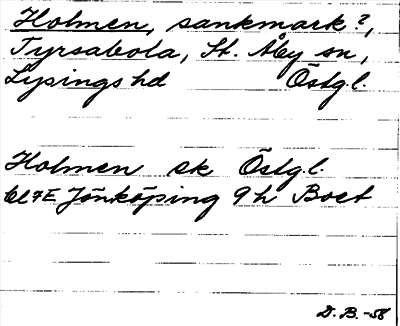 Holmen, sankmark?,
Tyrsabola, St. Åby sn,
Lysings hd Östg.l.
Holmen ek Östg.l.
Bl 7E Jönköping 9h Boet
D. B. -58